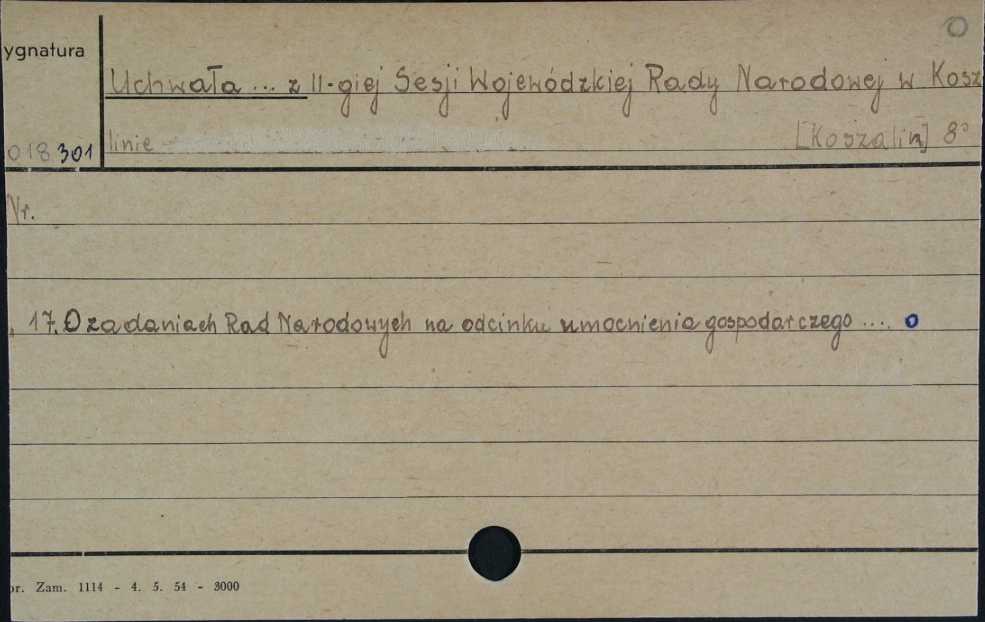 O
ygnatura
Uchwała ... z II-giej Sesji Wojewódzkiej Rady Narodowej w Kosz
018301 linie [Koszalin] 8°
Nr.
17. O zadaniach Rad Narodowych na odcinku umocnienia gospodarczego .... o
or. Zam. 1114 - 4. 5. 54 - 3000